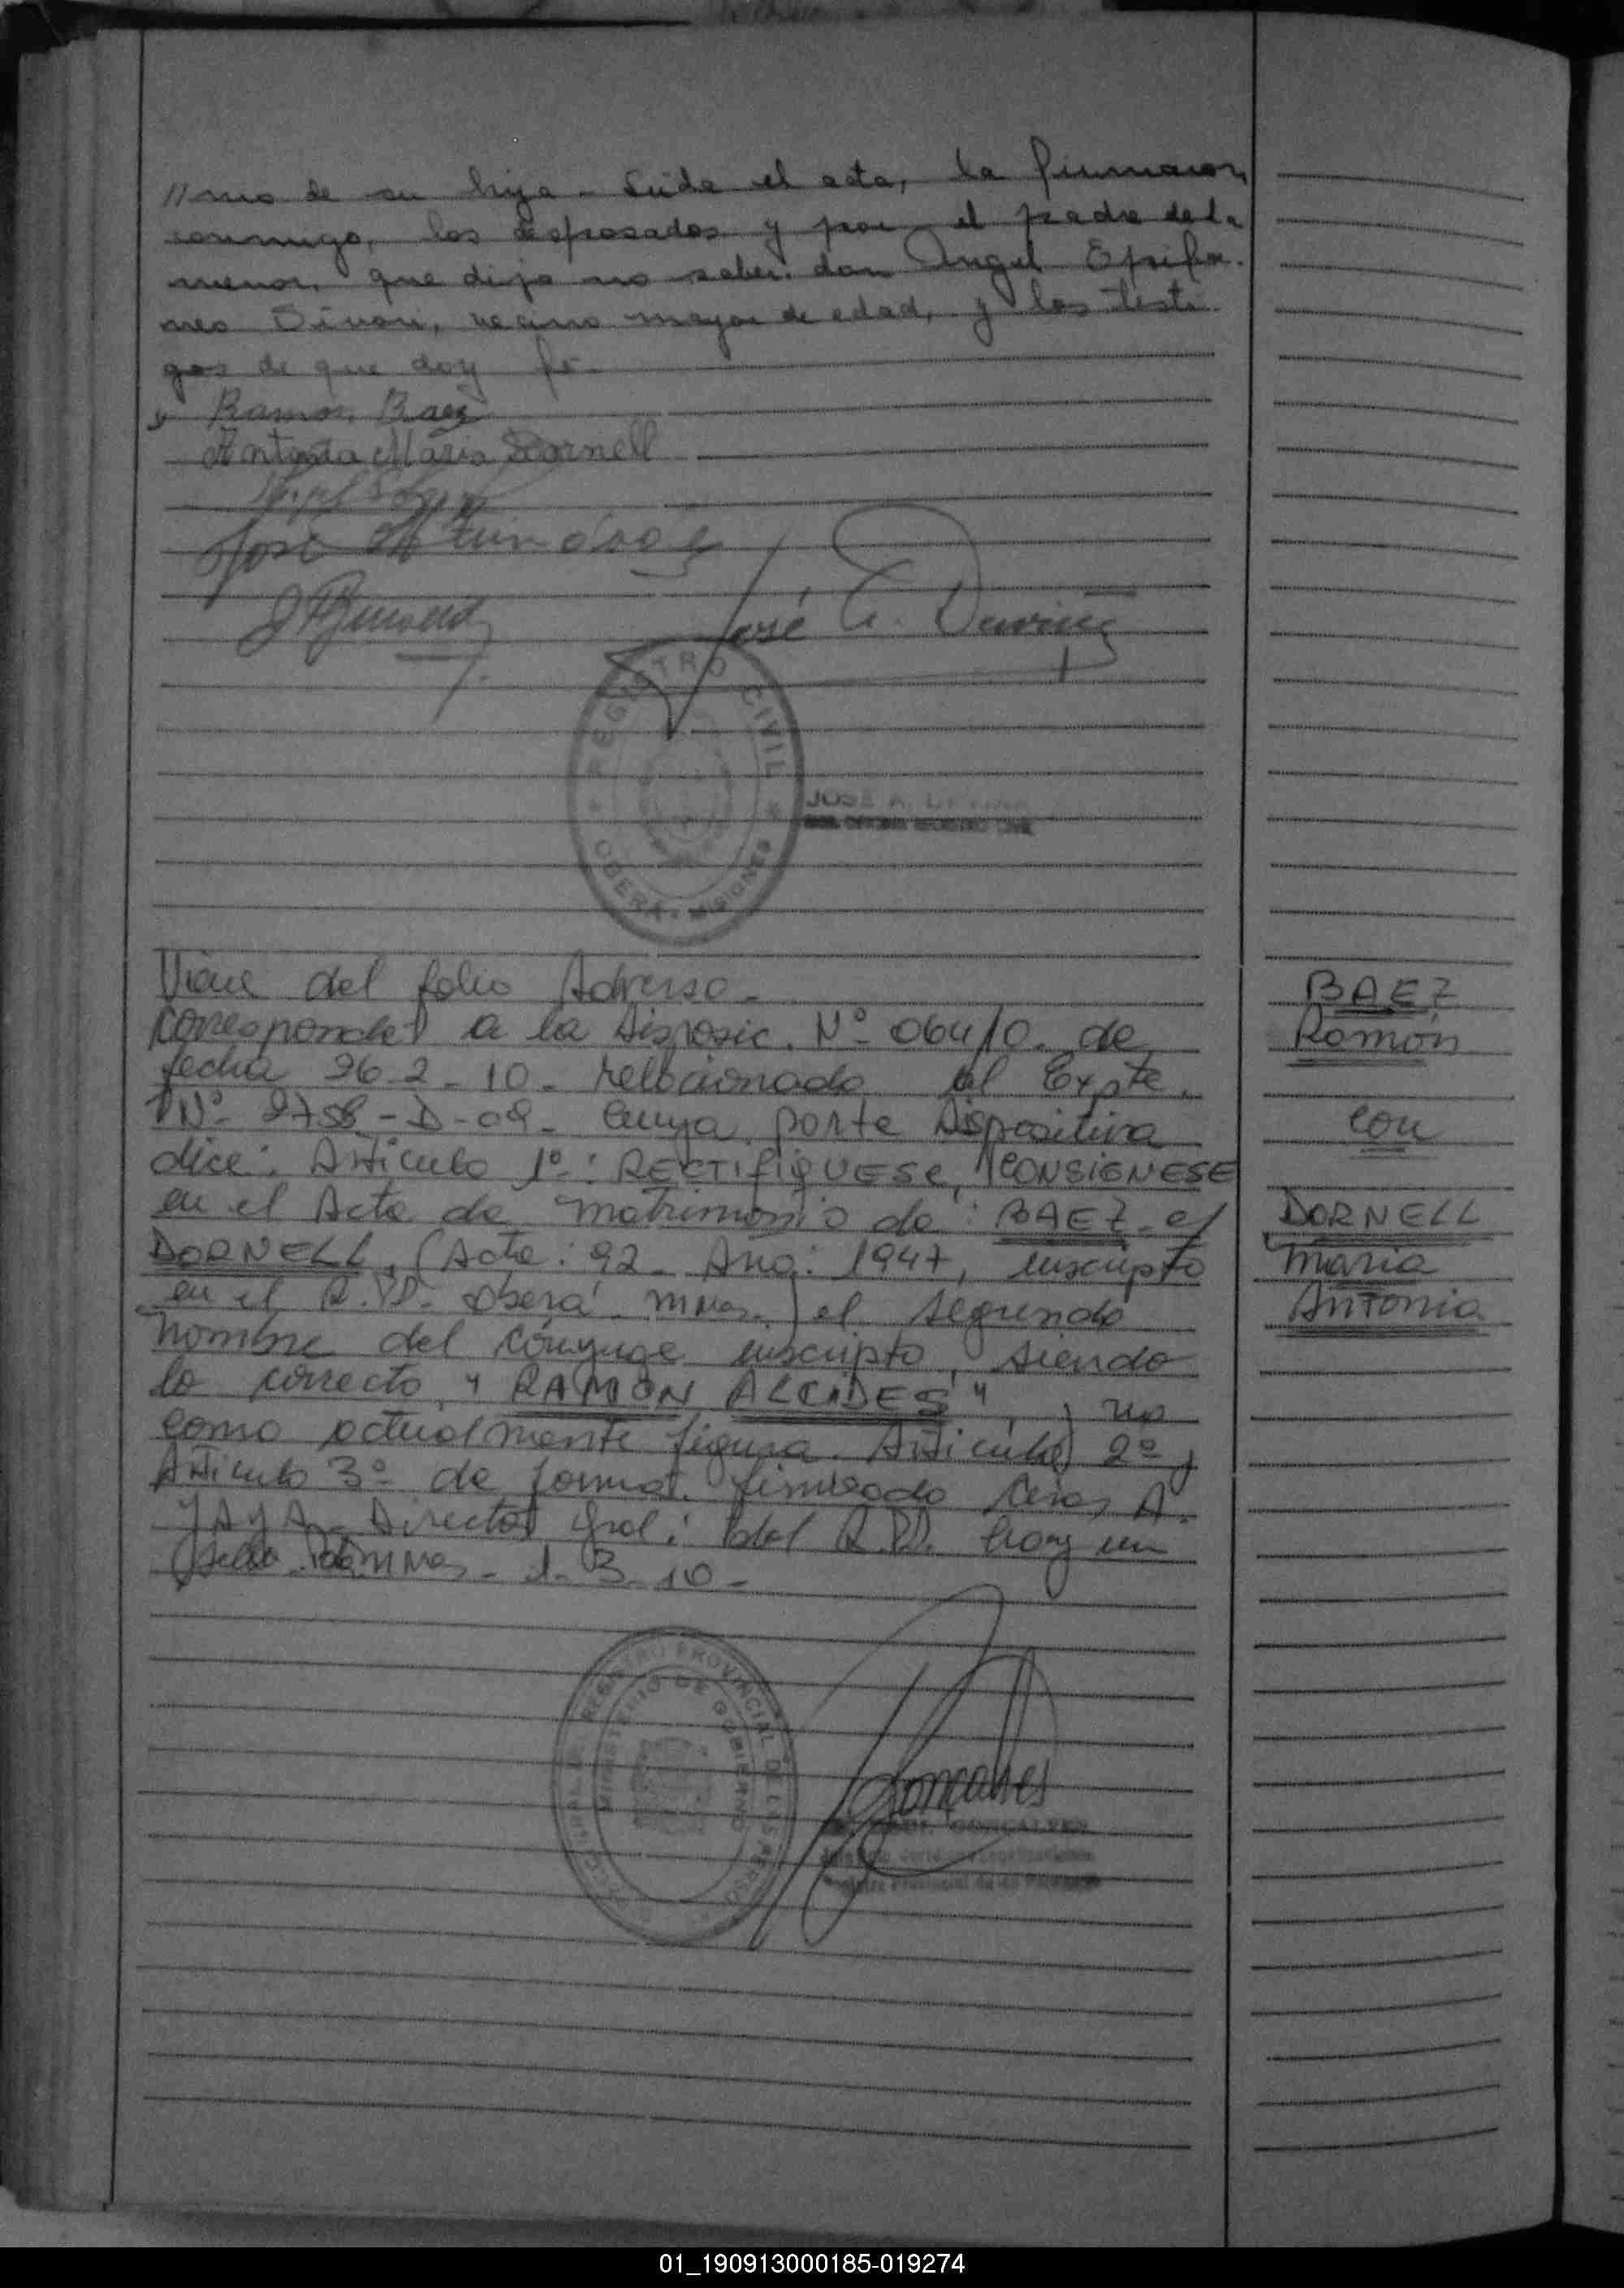 //mo de su hija - Leida el acta, la firmaron
conmigo, los desposados y por el padre de la
menor, que dijo no saber, don Angel Epifa-
neo, vecino mayor de edad, y los testi-
gos de que doy fé.-
Ramon Baez
Antonia Maria Dornell
José
José A.
REGISTRO CIVIL
OBERA - MISIONES
JOSE A.
Viene del folio Adverso -
BAEZ
Corresponde a la Disposic. Nº 064/10. de
Ramón
fecha 26-2-10- relacionado al Expte.
Nº 2758-D-09- Cuya parte Dispositiva
con
dice: Articulo 1º: RECTIFIQUESE, CONSIGNESE
en el Acta de Matrimonio de: BAEZ c/
DORNELL
DORNELL, (Acta: 92- Año: 1947, inscripto
Maria
en el R.P.P. Oberá Mnes.) el segundo
Antonia
nombre del cónyuge inscripto, siendo
lo correcto, "RAMON ALCIDES", y no
como actualmente figura. Articulo 2º y
Articulo 3º de forma. firmado A.
Director Gral: del R.P.P. hay un
Sello. Mnes- 1-3-10-
REGISTRO PROVINCIAL DE LAS PERSO
MINISTERIO DE GOBIERNO
Goncalves
GONCALVES
Registro Provincial de
01_190913000185-019274